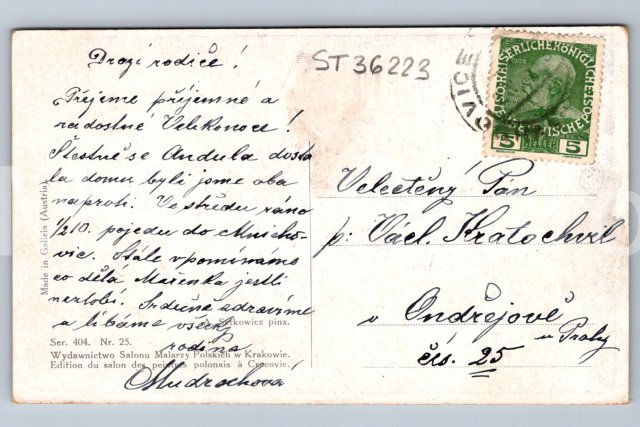 Drozí rodiče!
Přejeme příjemné a
radostné Velikonoce!
Šťestně se Andula dosta
la domu byli jsme oba
naproti. Ve středu ráno
1/2 10. pojedu do Mnicho-
vic. Stále vpomíname
co dělá Mařenka jestli
nezlobí. Srdečně zdravíme
a líbáme všecky
rodina
Mudrochová
pinx.
Ser. 404. Nr. 25.
Wydawnictwo Salonu Malarzy Polskich w Krakowie.
Edition du salon des peintres polonais à Cracovie.
Made in Galicia (Austria)
ST36223
OVICE
5 5
Velectěný Pan
p: Václ. Kratochvíl
v Ondřejově
u Prahy
čís. 25